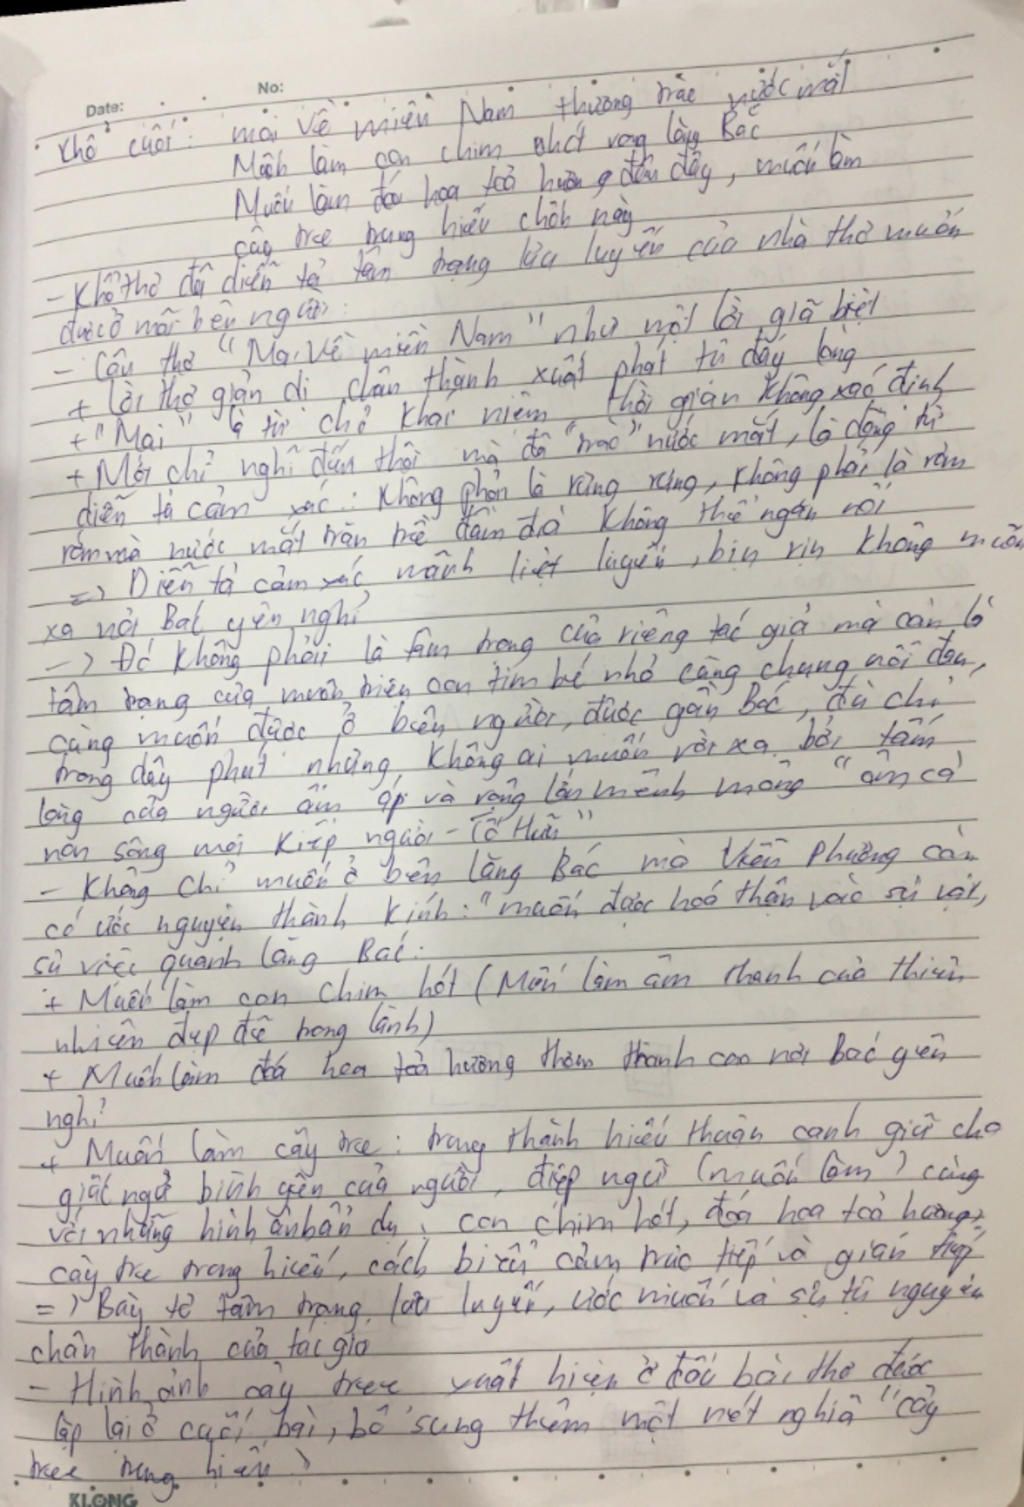 Date: No:
Khổ cuối: mai về miền Nam thương trào nước mắt
Muốn làm con chim hót lăng Bác
Muốn làm đóa hoa toả hương đâu đây, muốn làm
cây tre trung hiếu chốn này
- Khổ thơ đã diễn tả tâm trạng lưu luyến của nhà thơ muốn
được ở mãi bên người.
- Câu thơ "Mai về miền Nam" như một lời giã biệt
+ Lời thơ giản dị chân thành xuất phát từ đáy lòng
+ "Mai" là từ chỉ khái niệm thời gian không xác định
+ Mới chỉ nghĩ đến thôi mà đã "trào" nước mắt, là động từ
diễn tả cảm xúc: không phải là rưng rưng, không phải là rơm
rớm mà nước mắt tràn trề đầm đìa không thể ngăn nổi
=> Diễn tả cảm xúc mãnh liệt luyến, bịn rịn không muốn
xa nơi Bác yên nghỉ
-> Đó không phải là tâm trạng của riêng tác giả mà còn là
tâm trạng của muôn triệu con tim bé nhỏ cùng chung nỗi đau,
càng muốn được ở bên người, được gần Bác, dù chỉ
trong dây phút nhưng không ai muốn rời xa bởi tấm
lòng của người ấm áp và rộng lớn mênh mông "ôm cả
non sông mọi kiếp người - Tố Hữu"
- Không chỉ muốn ở bên lăng Bác mà Viễn Phương còn
có ước nguyện thành kính: "muốn được hoá thân vào sự vật,
sự việc quanh lăng Bác:
+ Muốn làm con chim hót (Muốn làm âm thanh của thiên
nhiên đẹp đẽ trong lành)
+ Muốn làm đoá hoa toả hương thơm thanh cao nơi Bác yên
nghỉ
+ Muốn làm cây tre: trung thành hiếu thuận canh giữ cho
giấc ngủ bình yên của người, điệp ngữ (muốn làm) cùng
với những hình ảnh ẩn dụ, con chim hót, đoá hoa toả hương,
cây tre trung hiếu, cách biểu cảm trực tiếp và gián tiếp
=> Bày tỏ tâm trạng lưu luyến, ước muốn và sự tự nguyện
chân thành của tác giả
- Hình ảnh cây tree xuất hiện ở đầu bài thơ được
lặp lại ở cuối bài, bổ sung thêm một nét nghĩa "cây
tree trung hiếu)
KLONG